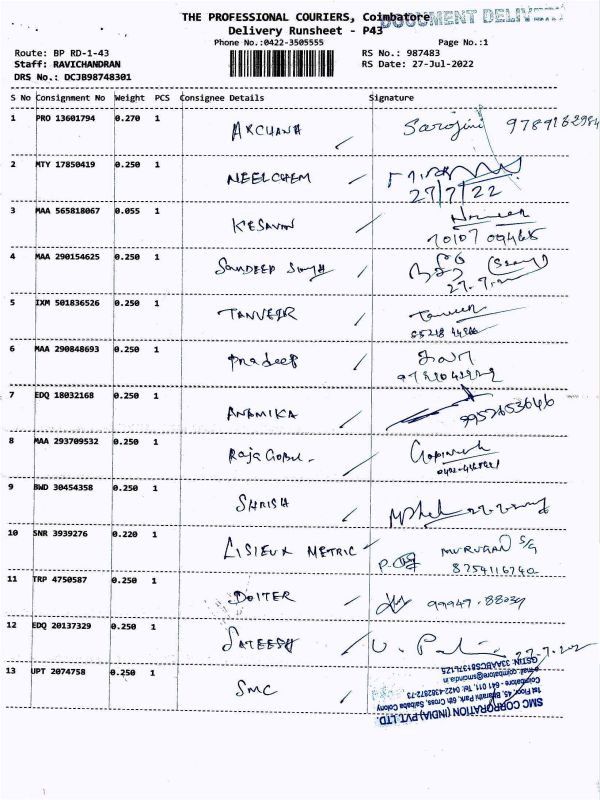 THE PROFESSIONAL COURIERS, Coimbatore
DOCUMENT DELIVERY
Delivery Runsheet - P43
Phone No.:0422-3505555 Page No.:1
Route: BP RD-1-43 RS No.: 987483
Staff: RAVICHANDRAN RS Date: 27-Jul-2022
DRS No.: DCJB98748301
S No Consignment No Weight PCS Consignee Details Signature
1 PRO 13601794 0.270 1 AKCHANA Sarojini
2 MTY 17850419 0.250 1 NEELCHEM
27/7/22
3 MAA 565818067 0.055 1 KESAVAN
4 MAA 290154625 0.250 1 Sandeep Singh
5 IXM 501836526 0.250 1 TANVEER Tanveer
6 MAA 290848693 0.250 1 Pradeep
7 EDQ 18032168 0.250 1 ANAMIKA 9952653646
8 MAA 293709532 0.250 1 Raja Gopal Gopinath
9 BWD 30454358 0.250 1 SHRISH
10 SNR 3939276 0.220 1 LISIEUX METRIC MURUGAN S/G
8754116740
11 TRP 4750587 0.250 1 DOITER 99947-88039
12 EDQ 20137329 0.250 1 SATEESH
13 UPT 2074758 0.250 1 SMC
SMC CORPORATION (INDIA) PVT. LTD.
1st Floor, 45, Bharathi Park, 6th Cross, Saibaba Colony
Coimbatore - 641 011. Tel: 0422-4382672-73
e-mail: coimbatore@smcindia.in